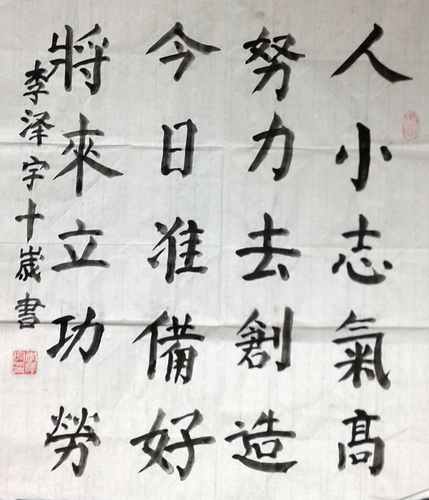 人小志氣髙
努力去創造
今日准備好
將來立功勞
李泽宇十歲書